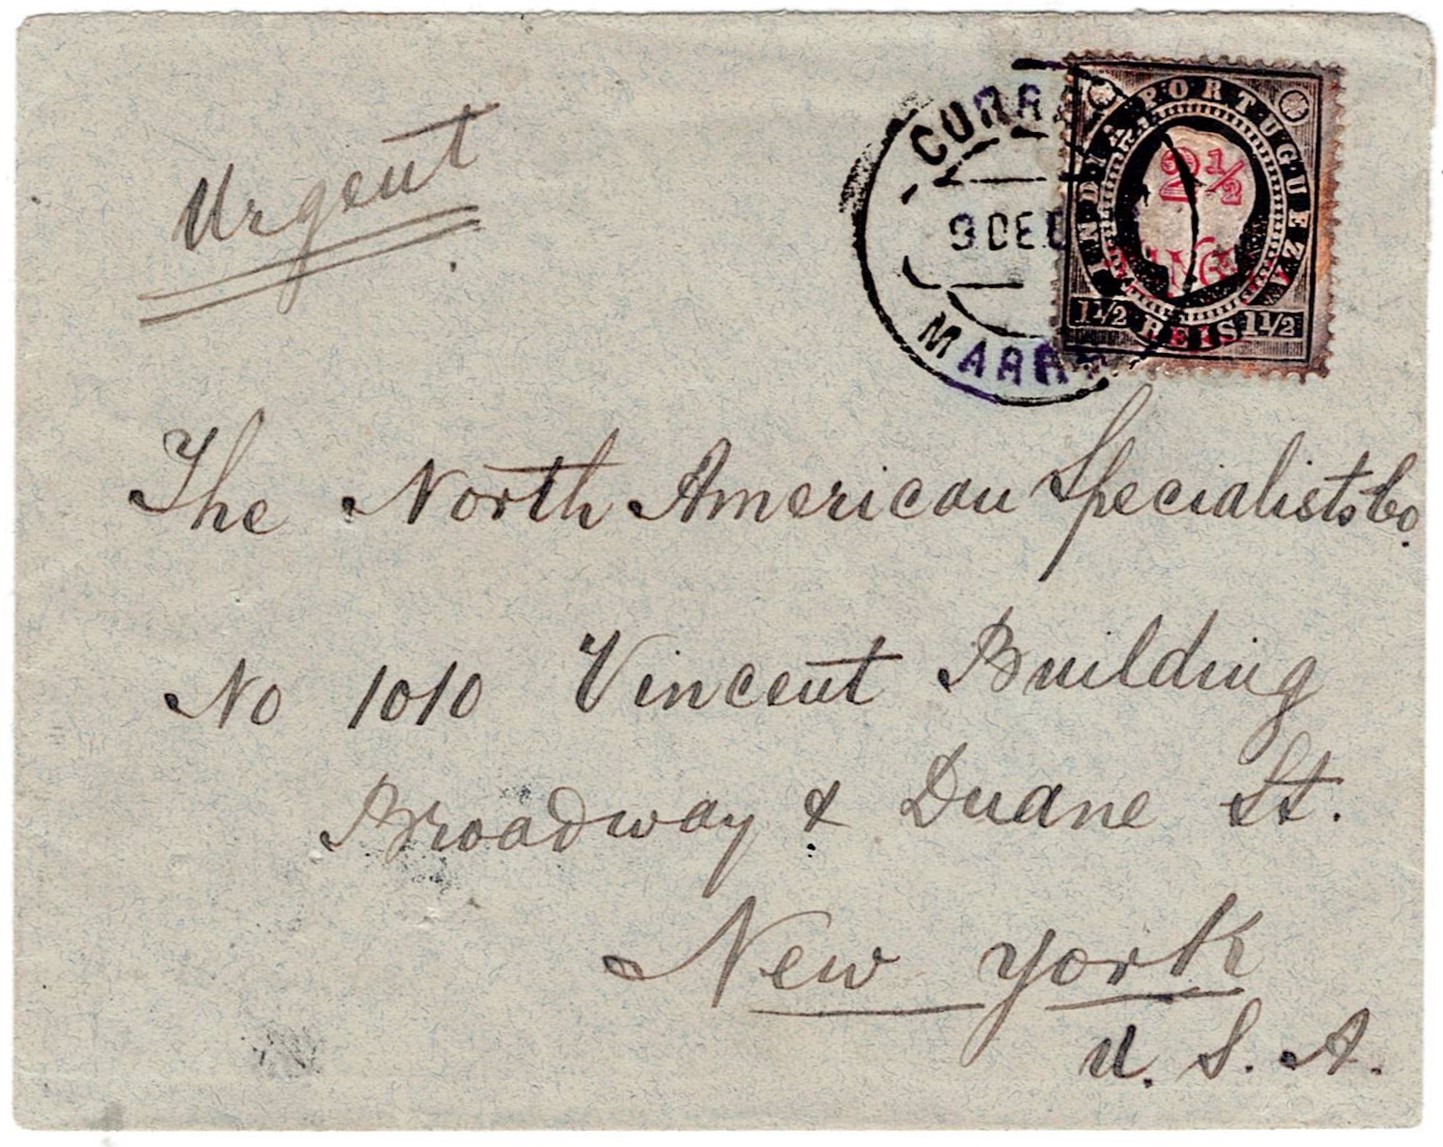 Urgent
CORR
9 DE
MARG
INDIA PORTUGUEZA
2½
1½ REIS 1½
The North American Specialists Co.
No 1010 Vincent Building
Broadway & Duane St.
New York
U. S. A.